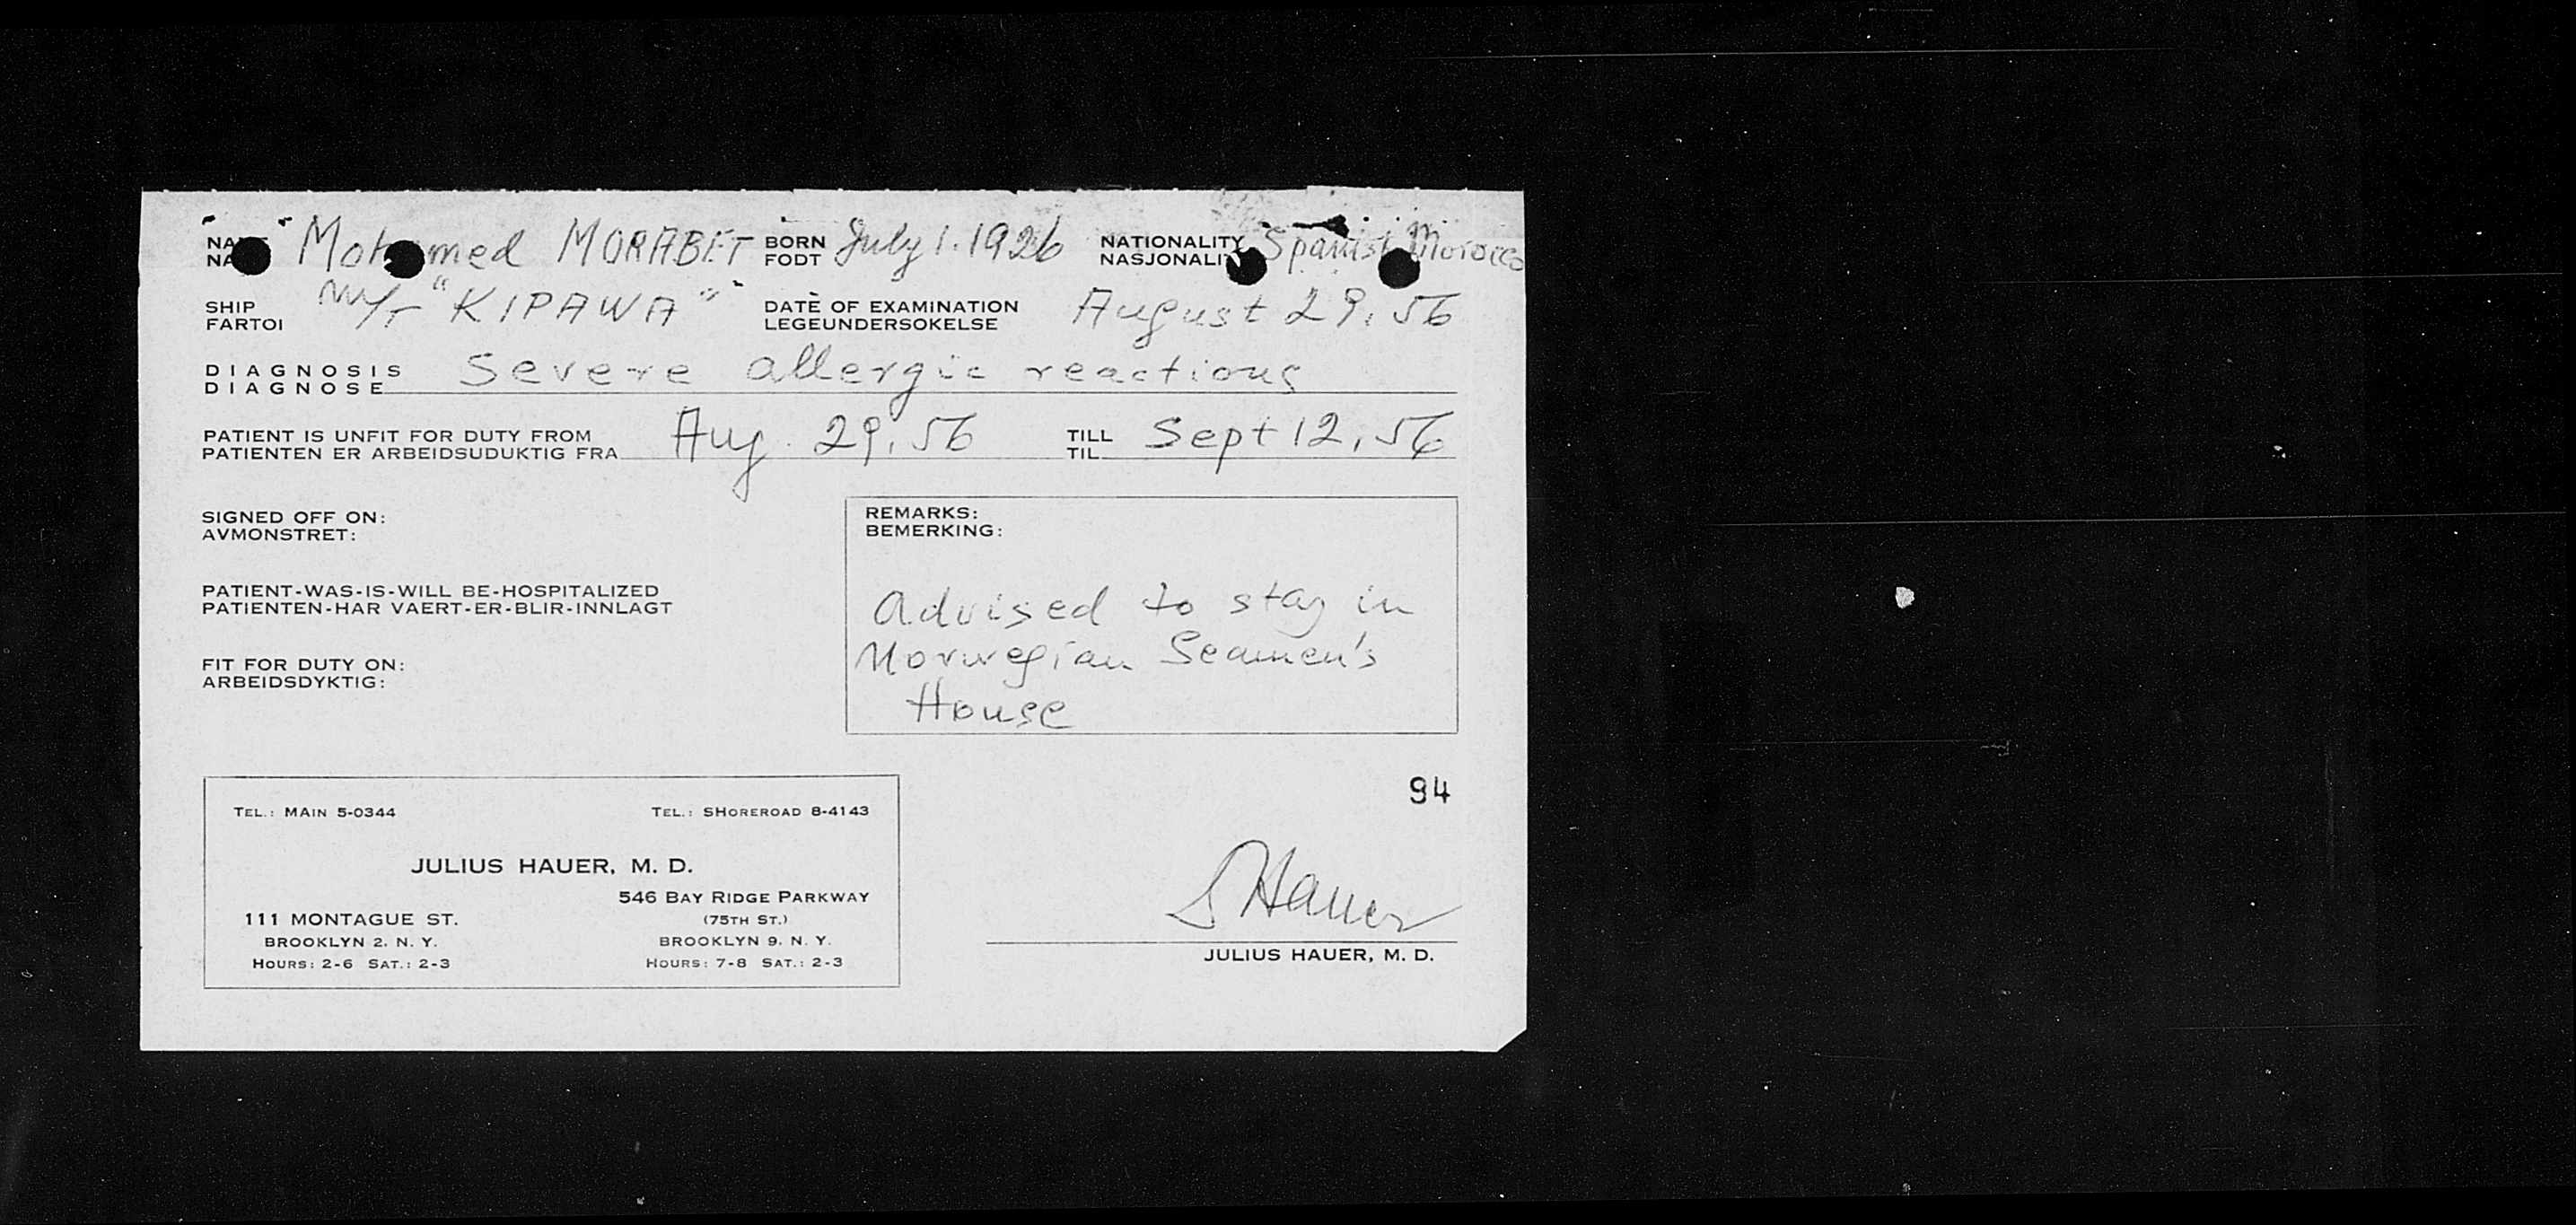 Mohamed MORABET BORN FODT July 1. 1926 NATIONALITY Spanish Morocco
SHIP FARTOI M/T "KIPAWA" DATE OF EXAMINATION LEGEUNDERSOKELSE August 29, 56
DIAGNOSIS DIAGNOSE Severe allergic reactions
PATIENT IS UNFIT FOR DUTY FROM PATIENTEN ER ARBEIDSUDUKTIG FRA Aug. 29, 56 TILL TIL Sept 12, 56
SIGNED OFF ON:
AVMONSTRET:
PATIENT-WAS-IS-WILL BE-HOSPITALIZED
PATIENTEN-HAR VAERT-ER-BLIR-INNLAGT
FIT FOR DUTY ON:
ARBEIDSDYKTIG:
REMARKS:
BEMERKING:
Advised to stay in
Norwegian Seamen's
House
94
TEL.: MAIN 5-0344 TEL.: SHOREROAD 8-4143
JULIUS HAUER, M. D.
111 MONTAGUE ST.
BROOKLYN 2, N. Y.
HOURS: 2-6 SAT.: 2-3
546 BAY RIDGE PARKWAY
(75TH ST.)
BROOKLYN 9, N. Y.
HOURS: 7-8 SAT.: 2-3
J Hauer
JULIUS HAUER, M. D.